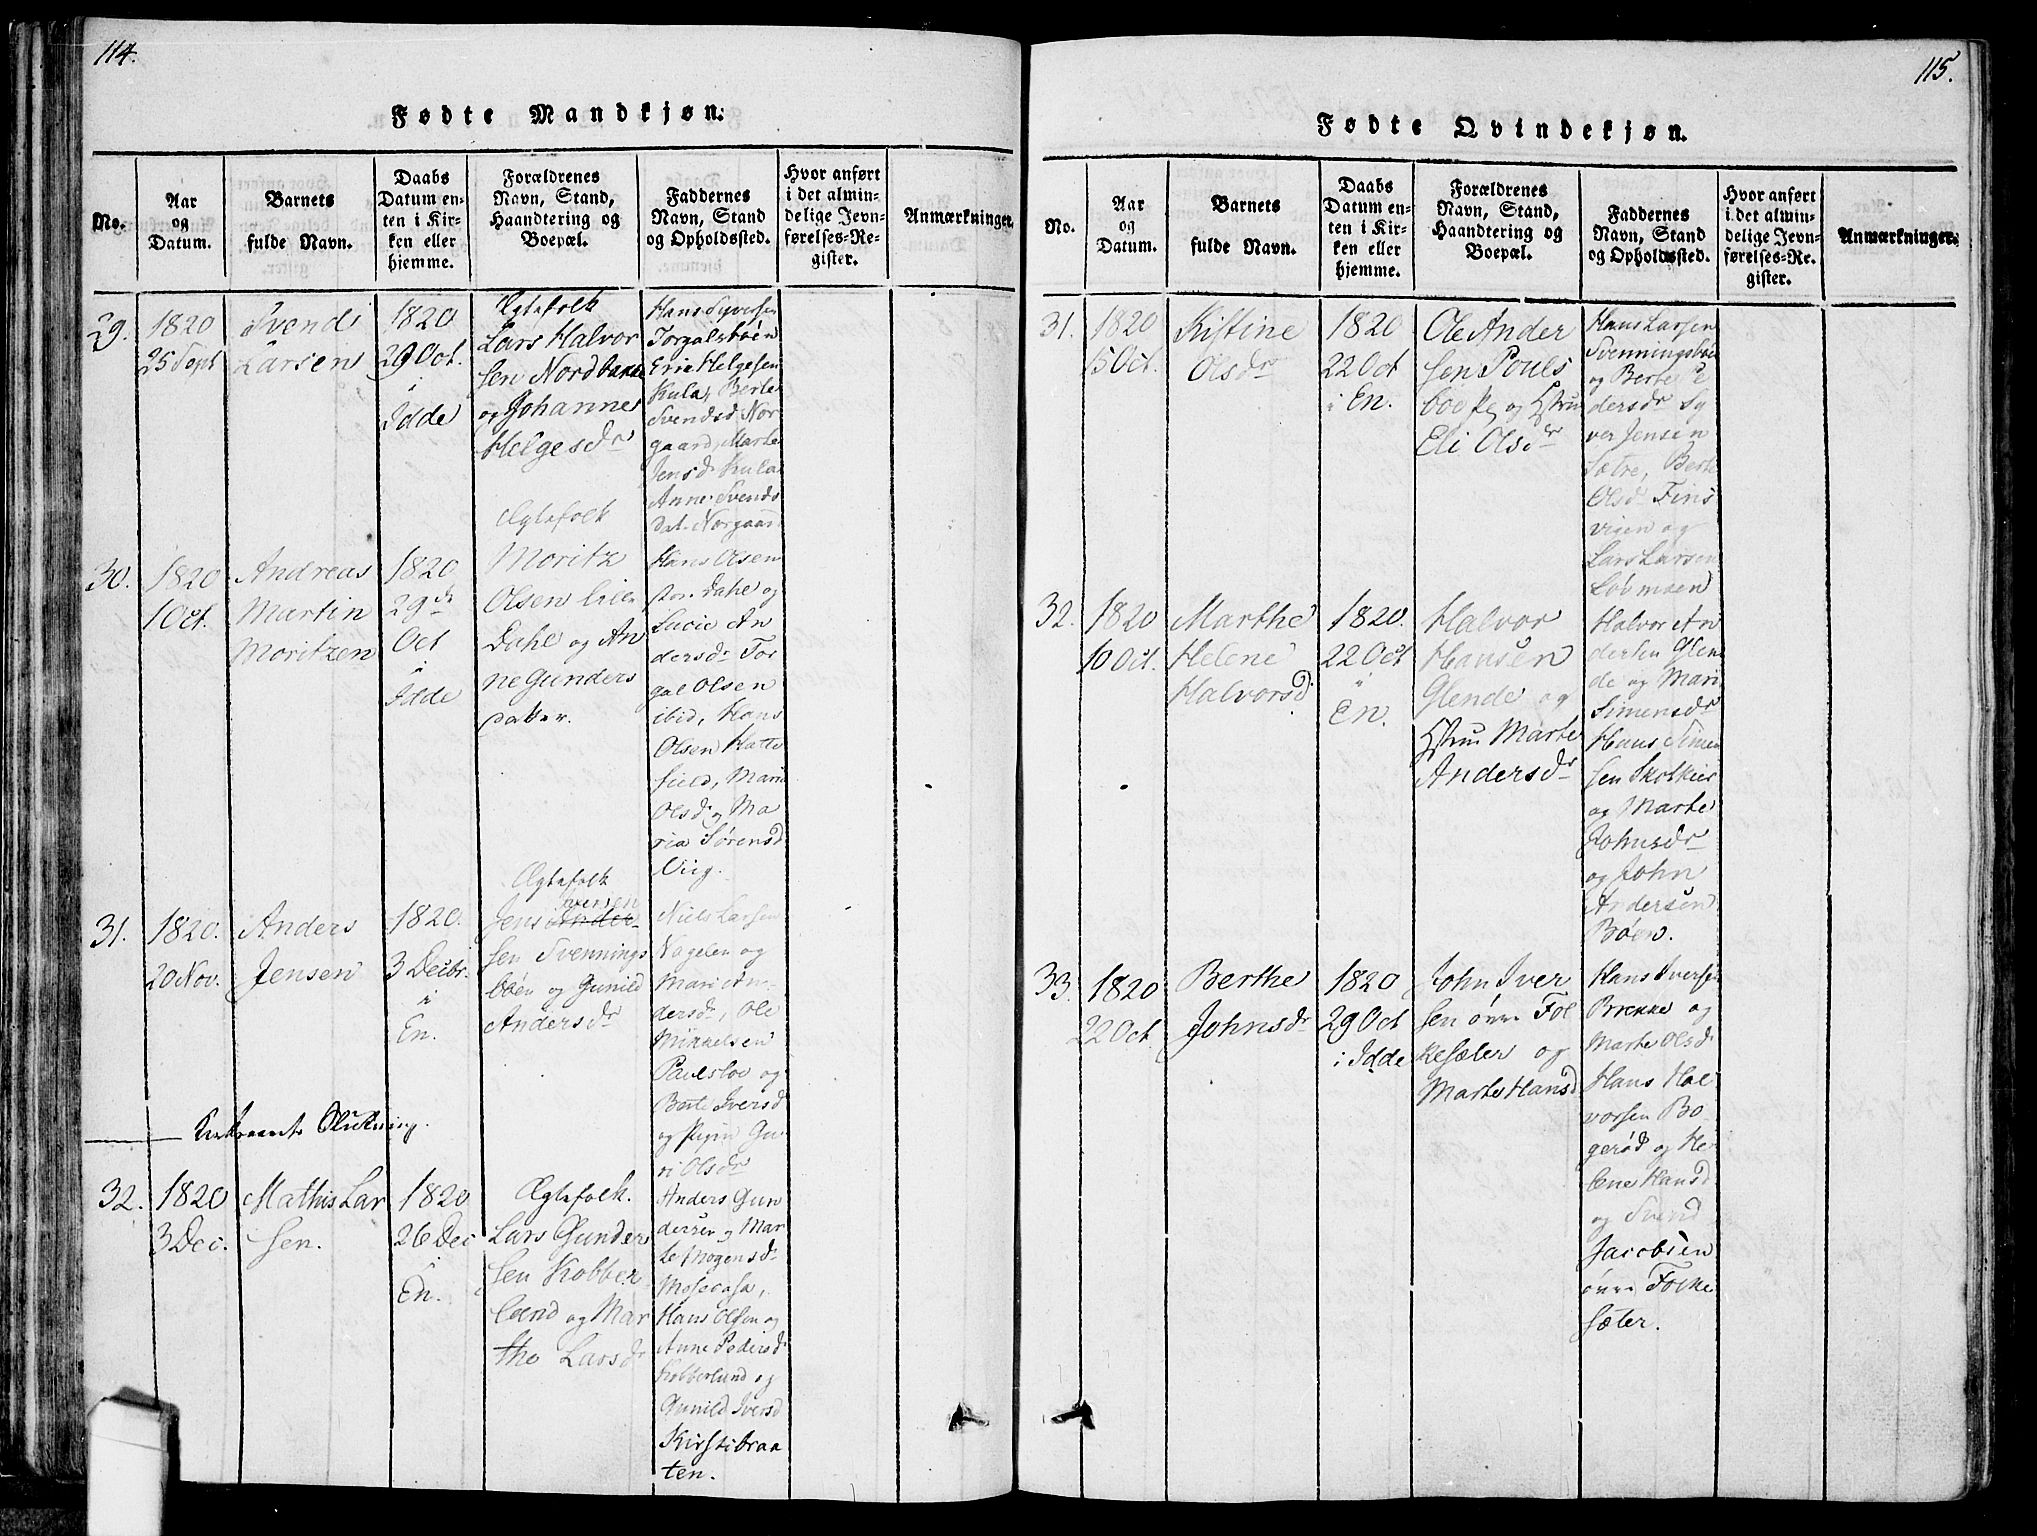 114.
Fødte Mandkjøn.
No.
Aar
og
Datum.
Barnets
fulde Navn.
Daabs
Datum en-
ten i Kir-
ken eller
hjemme.
Forældrenes
Navn, Stand,
Haandtering og
Boepæl.
Faddernes
Navn, Stand
og Opholdssted.
Hvor anført
i det almin-
delige Jevn-
førelses-Re-
gister.
Anmærkninger.
29.
1820
25 Sept
Svend
Larsen
1820
29 Oct.
i
Idde
Ægtefolk
Lars Halvor
sen Nordbakke
og Johanne
Helgesdr
Hans Syversen
Torgalsbøen
Eric Helgesen
Kula, Berte
Svendsd Nor
gaard, Marte
Jensd Kula
Anne Svends
dat. Norgaard
30.
1820
1 Oct.
Andreas
Martin
Moritzen
1820
29de
Oct
i
Idde
Ægtefolk
Moritz
Olsen lille
Dahl og An
ne Gunders
datter.
Hans Olsen
stor. Dahl og
Lucie An
dersdr Tor
gal Olsen
ibid, Hans
Olsen Hatte
field, Marie
Olsd og Ma
ria Sørensd
Viig.
31.
1820.
20 Nov.
Anders
Jensen
1820.
3 Decbr.
i
En.
Ægtefolk
Iversen
Jens
sen Svennings
bøen og Gunild
Andersdr
Niels Larsen
Nagelen og
Mari An-
dersdr, Ole
Mikkelsen
Paulsboe og
Berte Iversd
og Pigen Gu
ri Olsdr
32.
1820
3 Dec.
Mathis Lar
sen.
1820
26 Dec
i
En.
Ægtefolk.
Lars Gunder
sen Kobber
lund og Mar
the Larsdr
Anders Gun
dersen og Mar
te Mogensdr
Mosedasa,
Hans Olsen og
Anne Pedersdr
Kobberlund og
Gunild Iversd
Kirstibraa
ten.
115.
Fødte Qvindekjøn.
No.
Aar
og
Datum.
Barnets
fulde Navn.
Daabs
Datum en-
ten i Kir-
ken eller
hjemme.
Forældrenes
Navn, Stand,
Haandtering og
Boepæl.
Faddernes
Navn, Stand
og Opholdssted.
Hvor anført
i det almin-
delige Jevn-
førelses-Re-
gister.
Anmærkninger.
31.
1820
5 Oct.
Kistine
Olsdr
1820
22 Oct
i En.
Ole Ander
sen Pouls
boe Pg og Hstru
Eli Olsdr
Hans Larsen
Svenningsbøe
og Berte Pe
dersdr Sy
ver Jensen
Sætre, Berte
Olsd Fins
vigen og
Lars Larsen
Løvmsen
32.
1820
10 Oct.
Marthe
Helene
Halvorsd.
1820.
22 Oct
i
En.
Halvor
Hansen
Glende og
Hstru Marte
Andersdr
Halvor An
dersen Glen
de og Mari
Simensdr
Hans Simen
sen Skolkier
og Marte
Johnsdr
og John
Andersen
Bøen.
33.
1820
22 Oct.
Berthe
Johnsdr
1820
29 Oct
i Idde
John Iver
sen øvre Fol
kesæter og
Marte Hansd
Hans Iversen
Brekke og
Marte Olsd
Hans Hal
vorsen Bo
gerød og He
lene Hansd
og Svend
Jacobsen
øvre Folke
sæter.